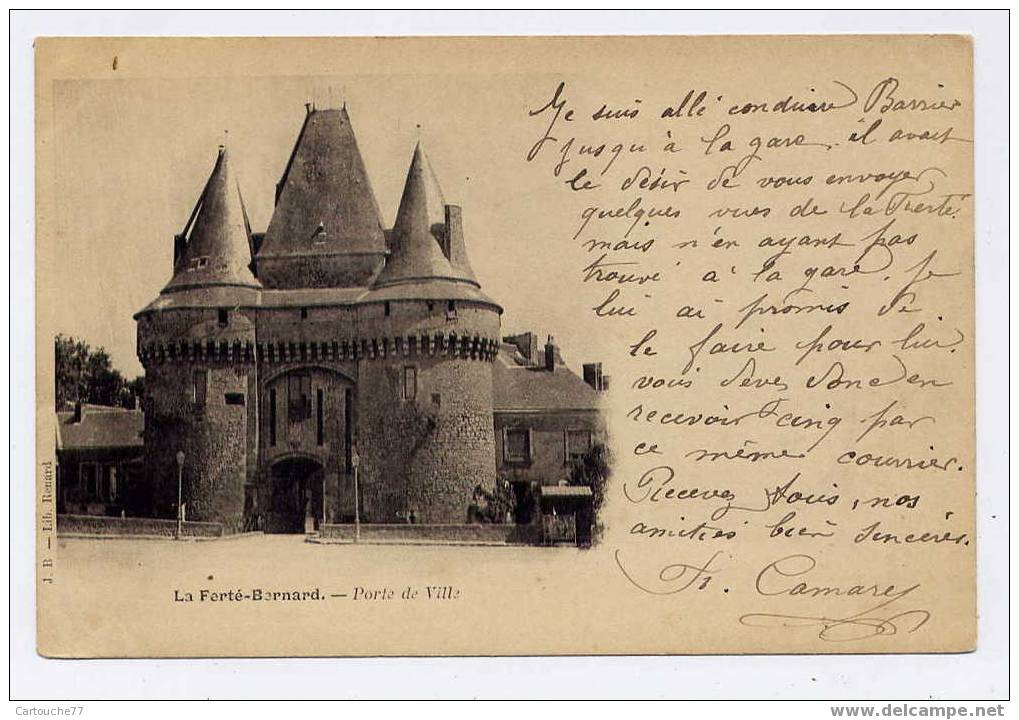 Je suis allé conduire Barrier
jusqu'à la gare, il avait
le désir de vous envoyer
quelques vues de la Ferté.
mais n'en ayant pas
trouvé à la gare, je
lui ai promis de
le faire pour lui.
vous devez donc en
recevoir cinq par
ce même courrier.
Recevez tous, nos
amitiés bien sincères.
Fr. Camarey
J. B — Lib. Renard
La Ferté-Bernard. — Porte de Ville
Cartouche77
www.delcampe.net